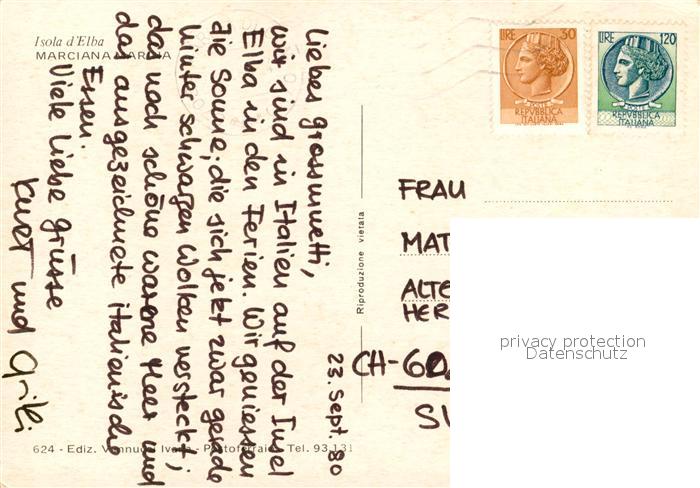 Isola d'Elba
MARCIANA MARINA
23. Sept. 80
Liebes Grossmuetti,
wir sind in Italien auf der Insel
Elba in den Ferien. Wir geniessen
die Sonne, die sich jetzt zwar gerade
hinter schwarzen Wolken versteckt,
das noch schöne warme Meer und
das ausgezeichnete italienische
Essen.
Viele liebe Grüsse
Kurt und
LIRE 30
POSTE
REPVBBLICA
ITALIANA
LIRE 120
POSTE
REPVBBLICA
ITALIANA
FRAU
MAT
ALTE
HER
CH-60
SV
Riproduzione vietata
624 - Ediz. Ivana - Portoferraio Tel. 93.131
privacy protection
Datenschutz